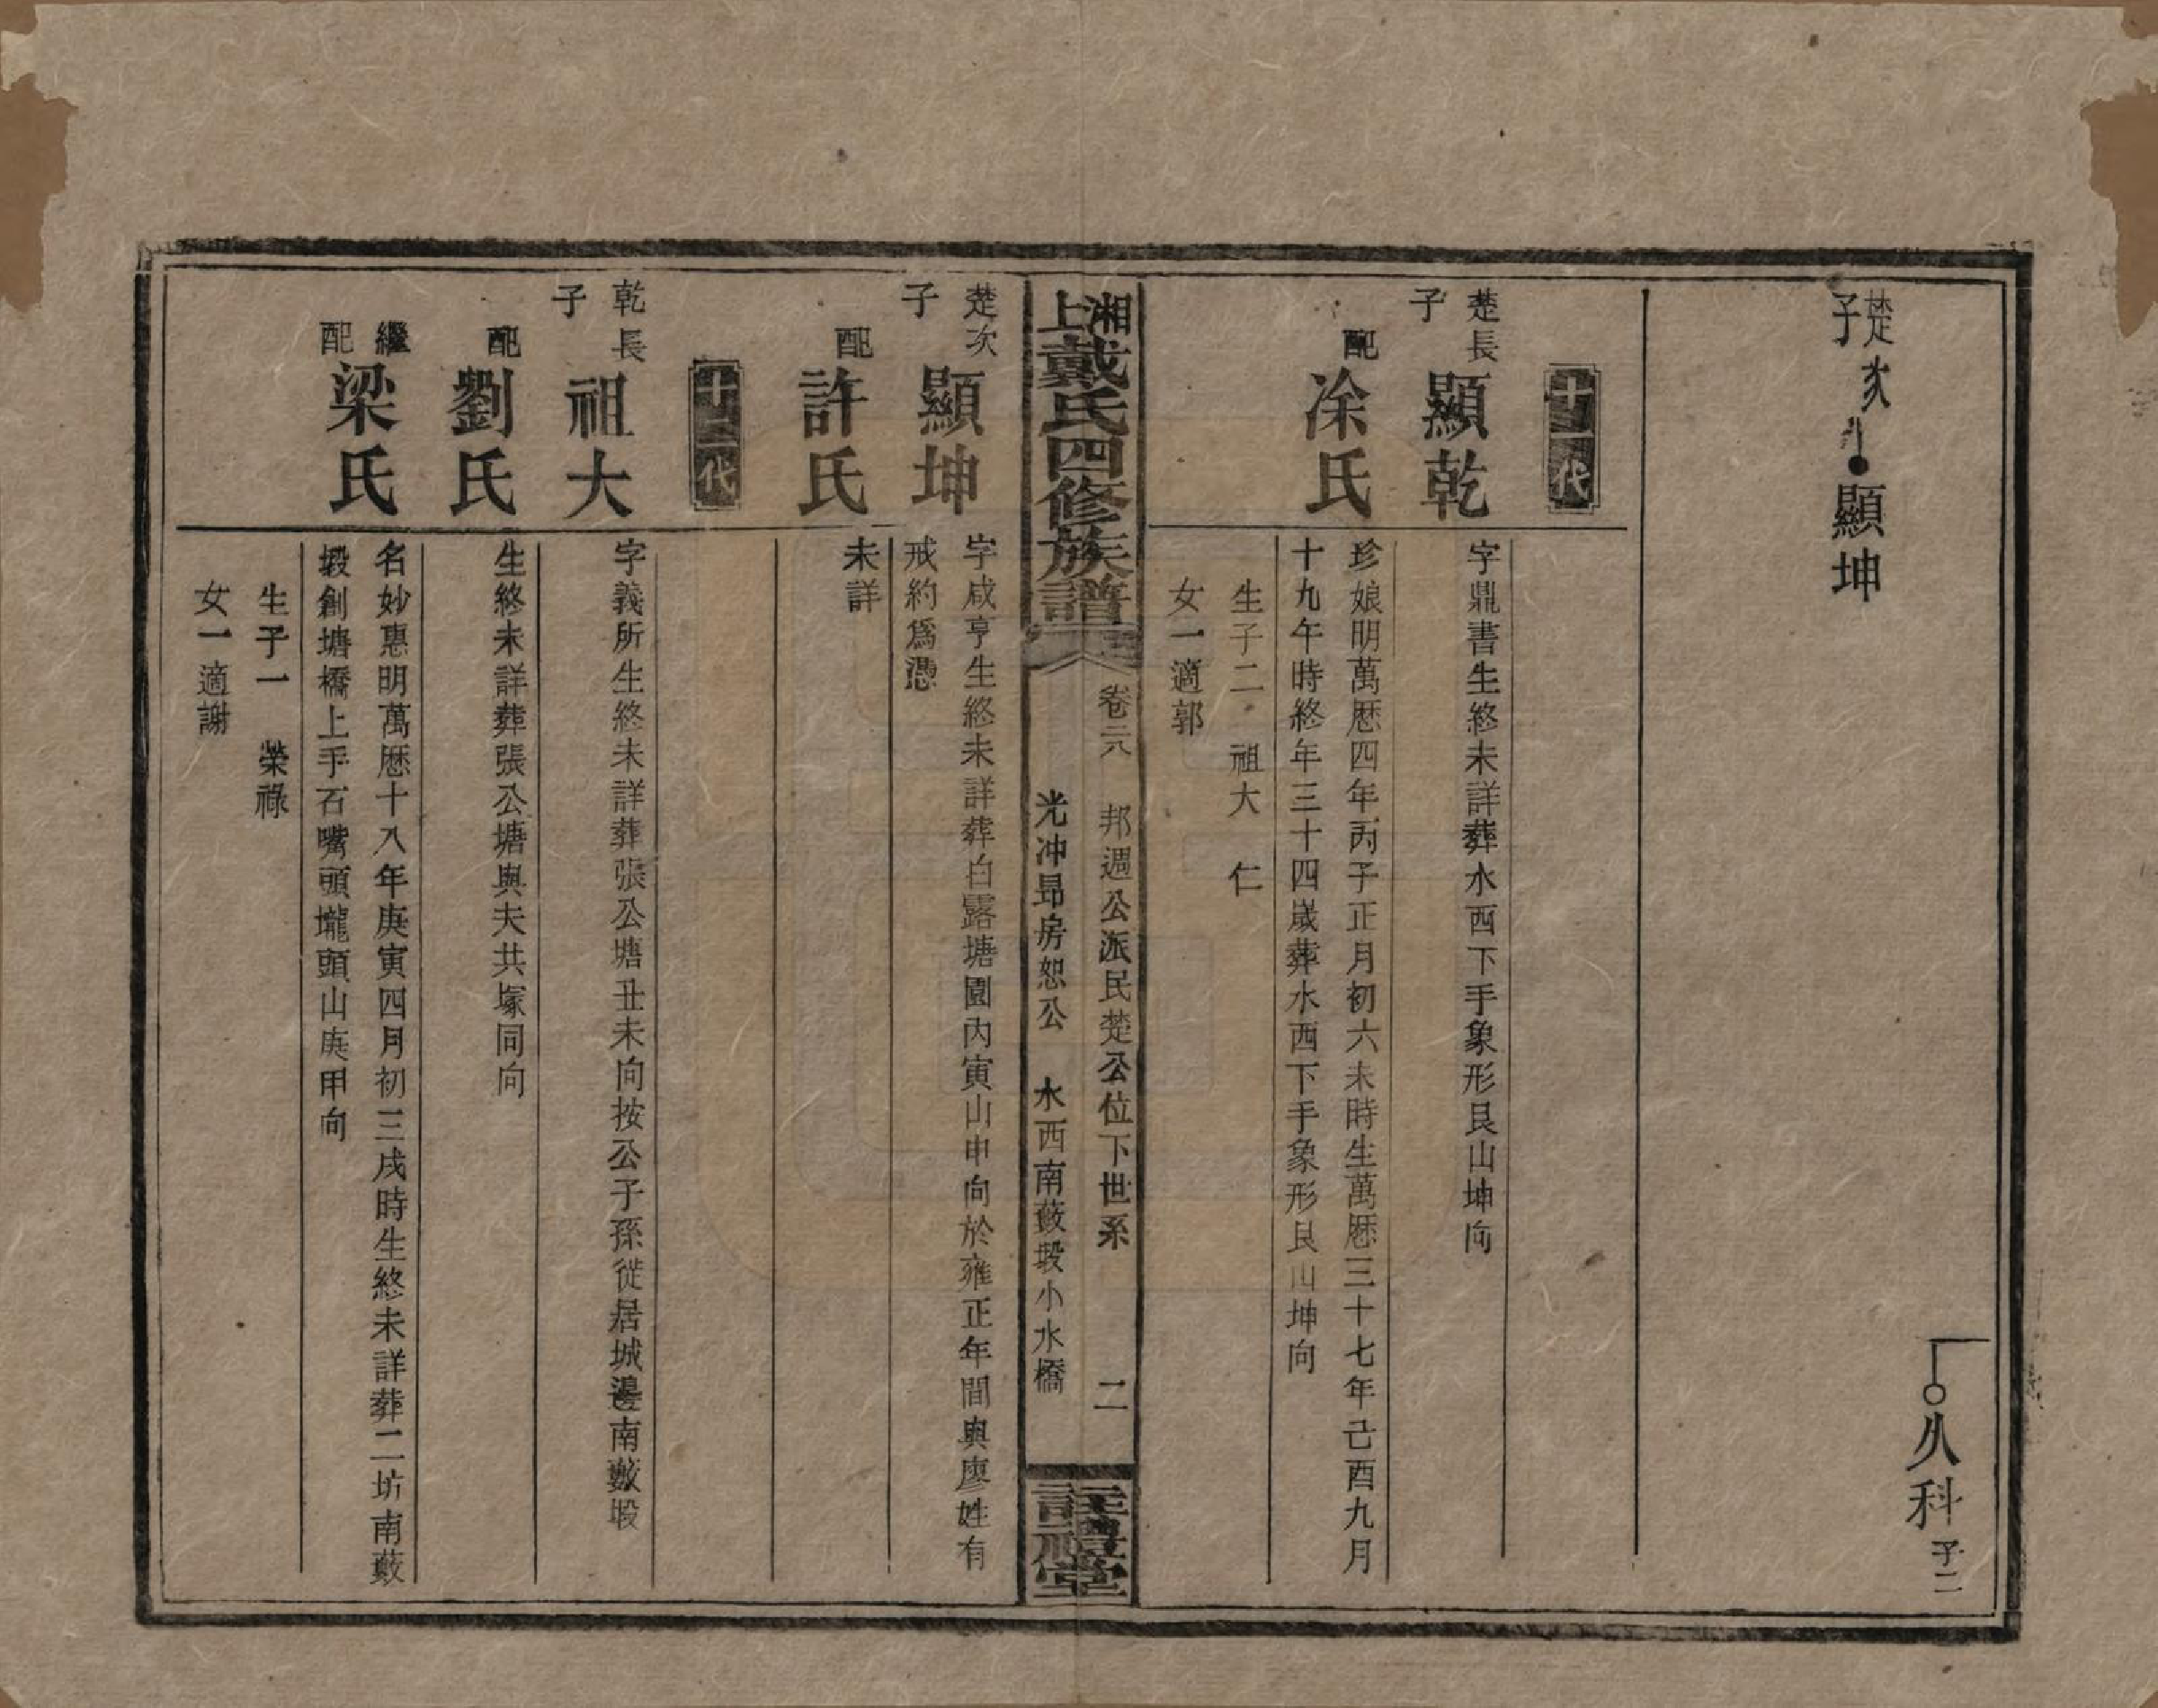 久科 子二
楚次子 顯坤
十一代
楚長子 顯乾
字鼎書生終未詳葬水西下手象形艮山坤向
配 凃氏
珍娘明萬厯四年丙子正月初六未時生萬厯三十七年己酉九月
十九午時終年三十四歲葬水西下手象形艮山坤向
生子二 祖大 仁
女一適郭
湘上戴氏四修族譜
卷六 邦週公派民楚公位下世系 二
光冲昻房恕公 水西南薮塅小水橋
註禮堂
楚次子 顯坤
字咸亨生終未詳葬白露塘園內寅山申向於雍正年間與廖姓有
戒約爲憑
配 許氏
未詳
十二代
乾長子 祖大
字義所生終未詳葬張公塘丑未向按公子孫徙居城邊南薮塅
配 劉氏
生終未詳葬張公塘與夫共塚同向
繼配 梁氏
名妙惠明萬厯十八年庚寅四月初三戌時生終未詳葬二坊南薮
塅創塘橋上手石嘴頭壠頭山庚甲向
生子一 榮祿
女一適謝